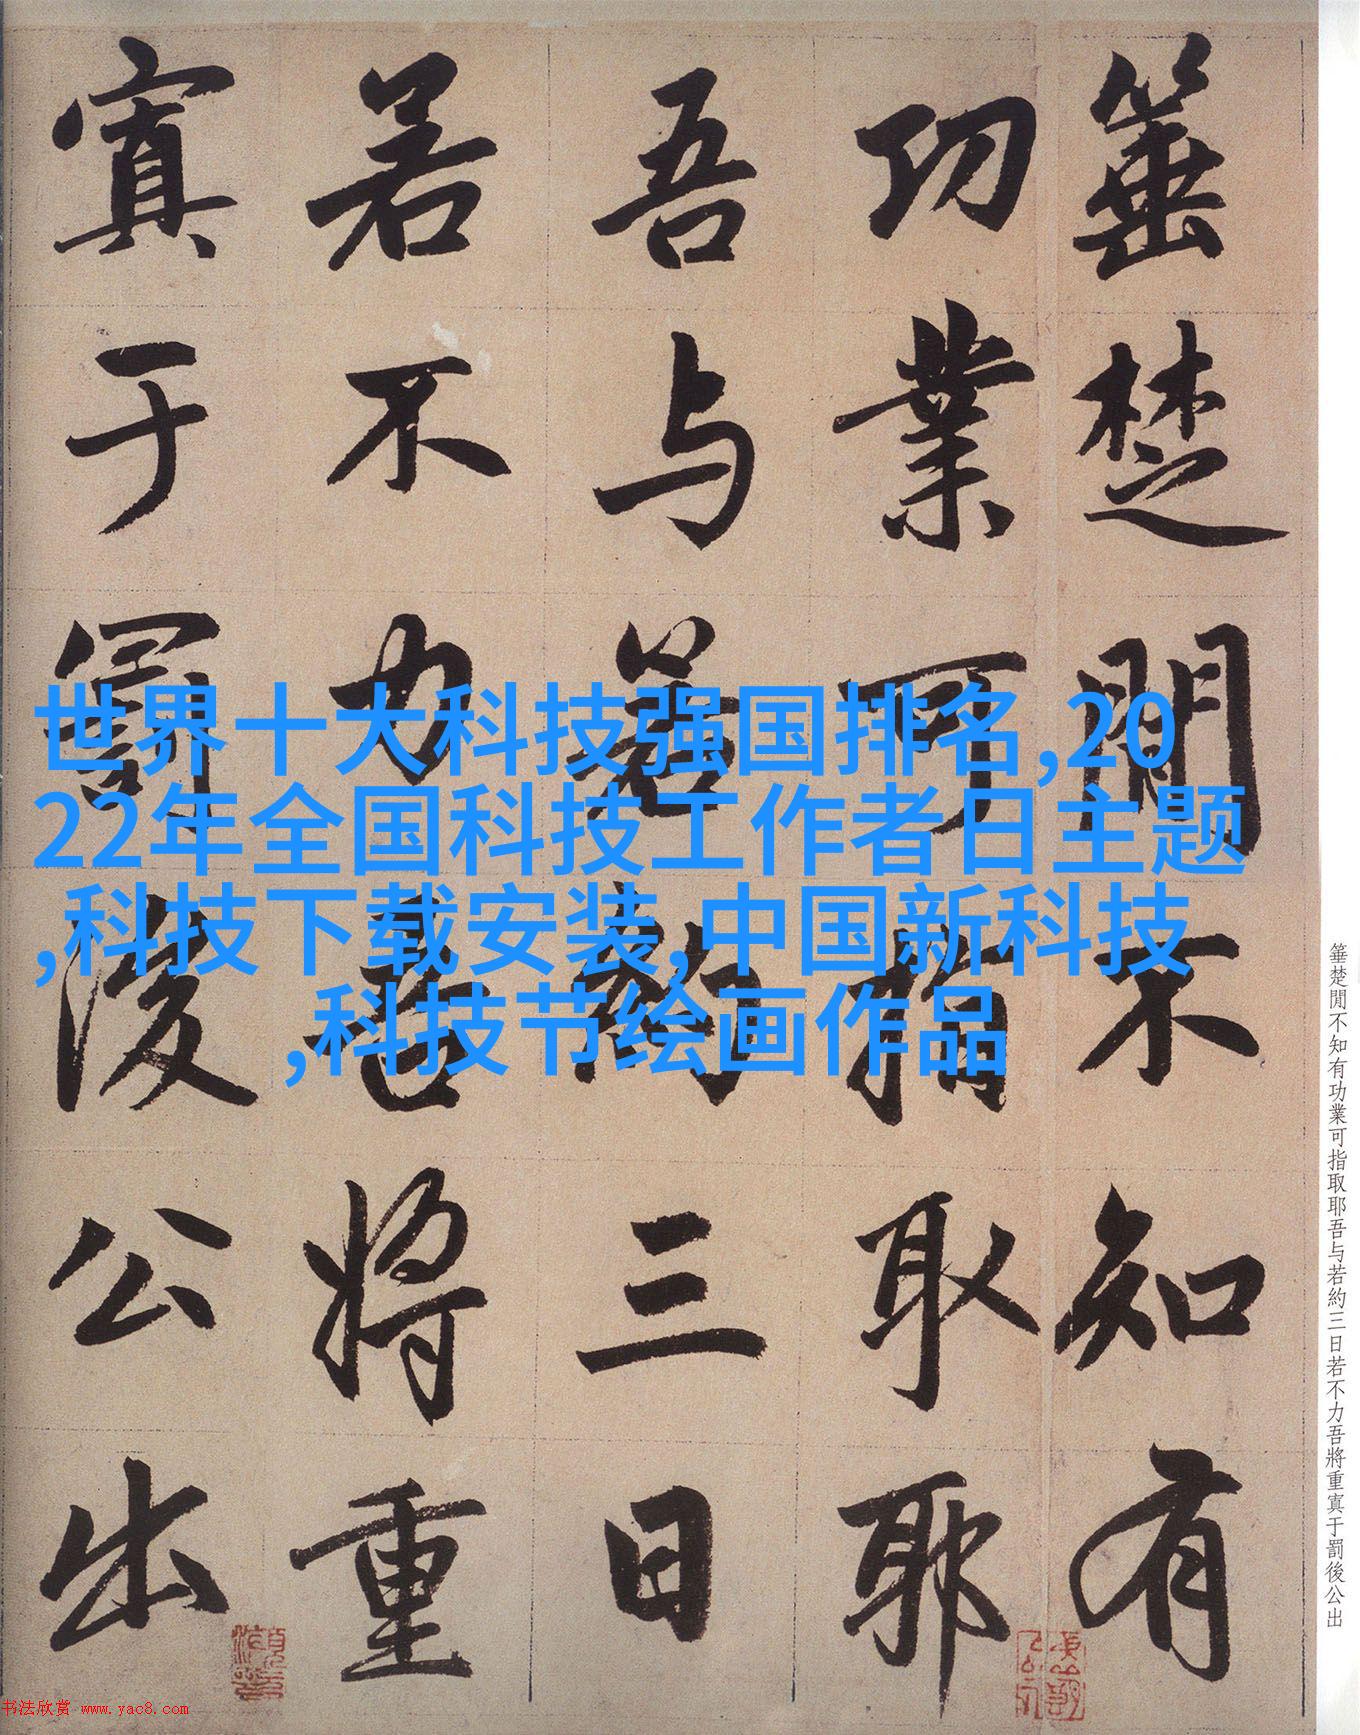 箠楚閒不知有
功業可指取耶
吾与若約三日
若不力吾將重
寘于罰後公出
世界十大科技强国排名,20
22年全国科技工作者日主题
,科技下载安装,中国新科技
,科技节绘画作品
箠楚閒不知有功業可指取耶吾与若約三日若不力吾將重寘于罰後公出
书法欣赏 www.yac8.com